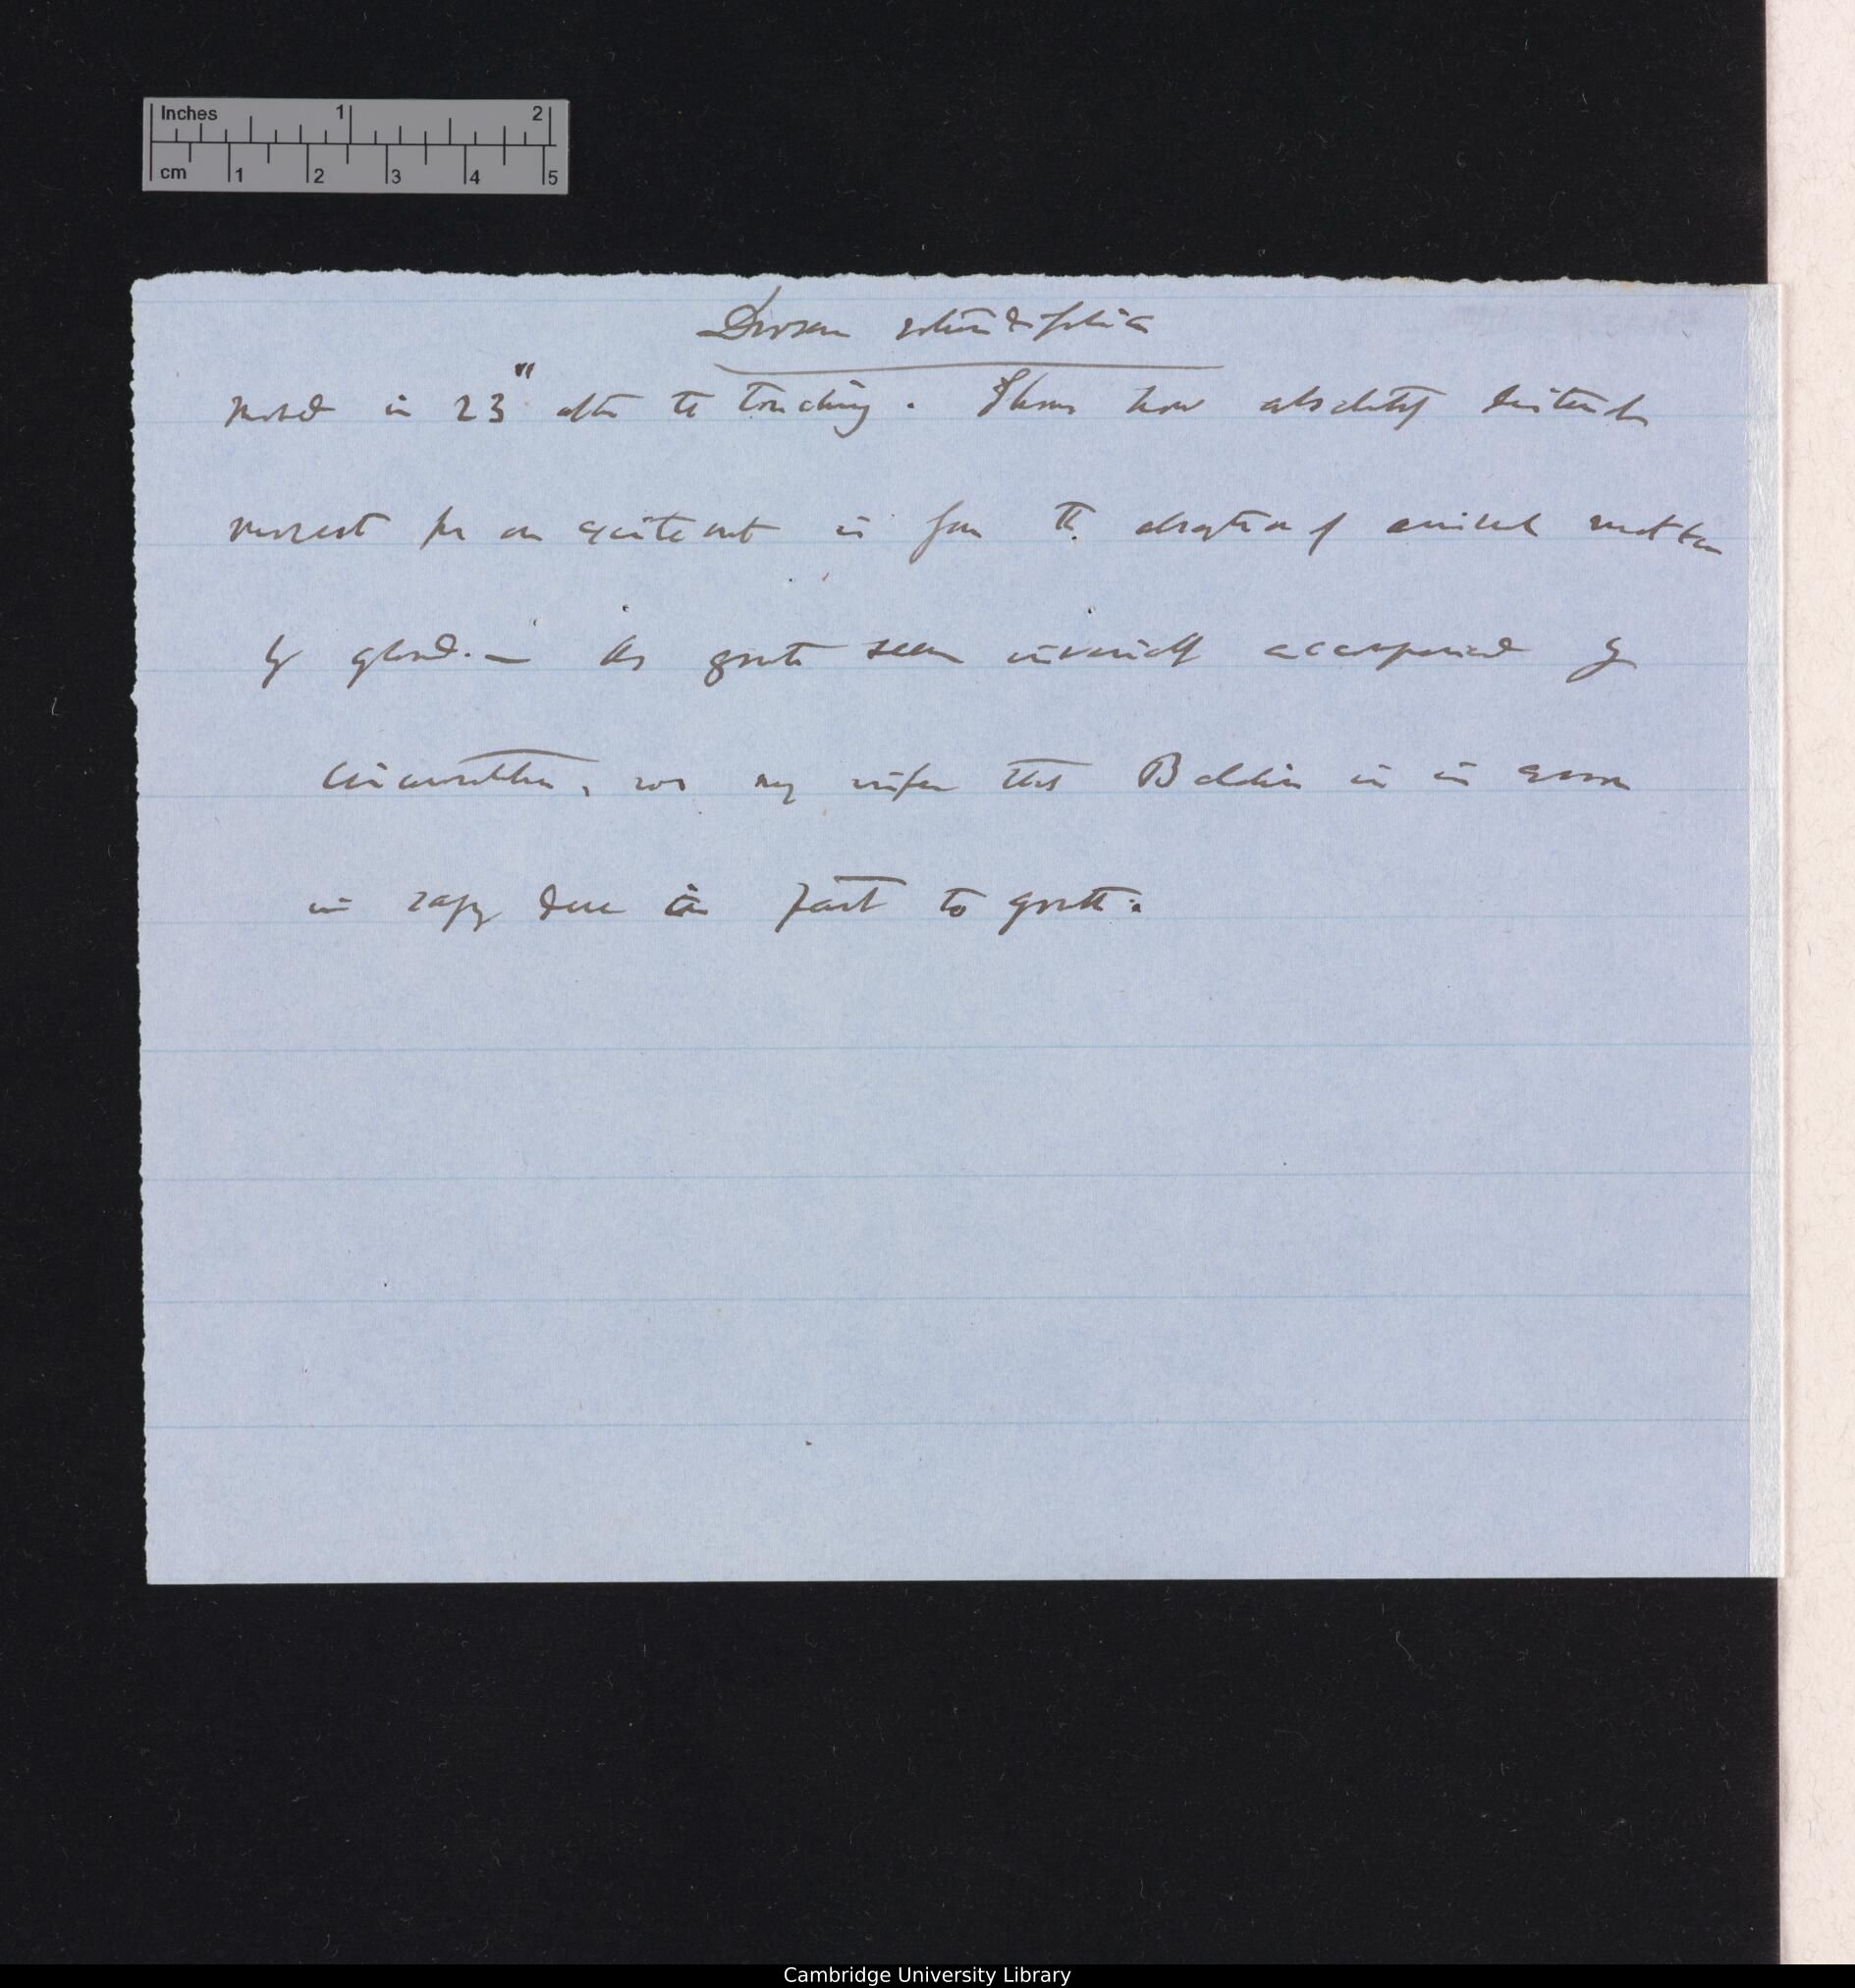 Inches 1 2
cm 1 2 3 4 5
Drosera rotundifolia
moved in 23" after the touching. Shows how absolutely distinct
movement from an excitement is from the absorption of animal matter
by gland. — As growth seem invariably accompanied by
circumnutation, we may infer that Batalin is in error
in saying due in part to growth.
Cambridge University Library